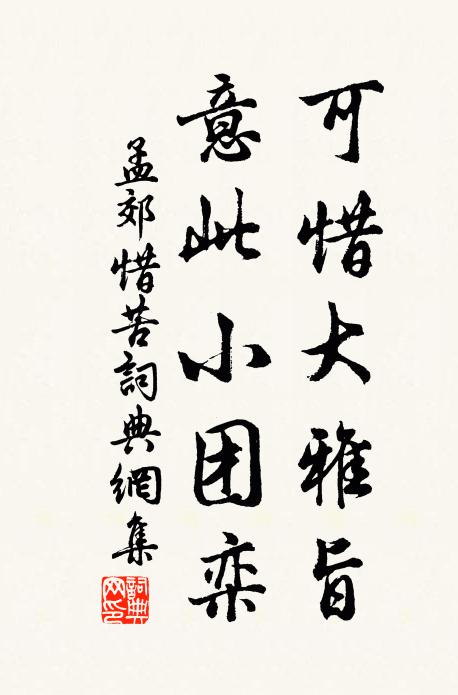 可惜大雅旨
意此小团栾
孟郊惜苦詞典網集
詞典网印